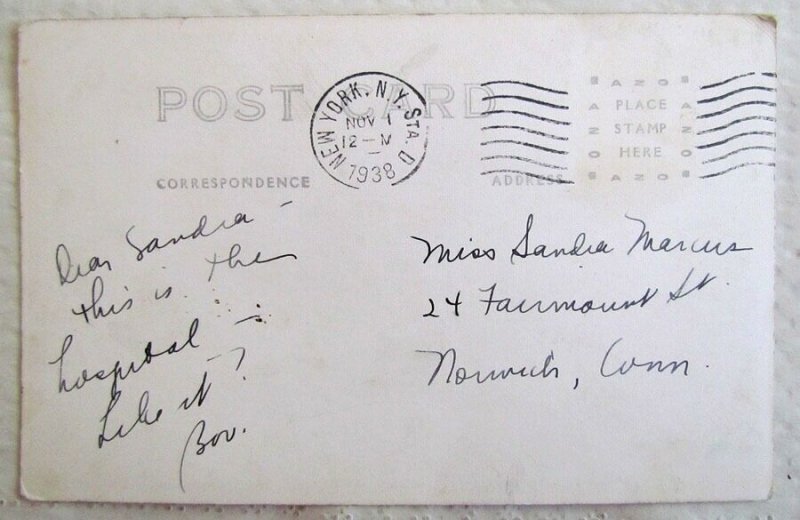 POST CARD
NEW YORK, N.Y. STA. D
NOV 1
12-M
1938
AZO
PLACE
STAMP
HERE
AZO
CORRESPONDENCE
ADDRESS
Dear Sandra -
this is the
hospital -
Like it?
Bov.
Miss Sandra Marcus
24 Fairmount St.
Norwich, Conn.